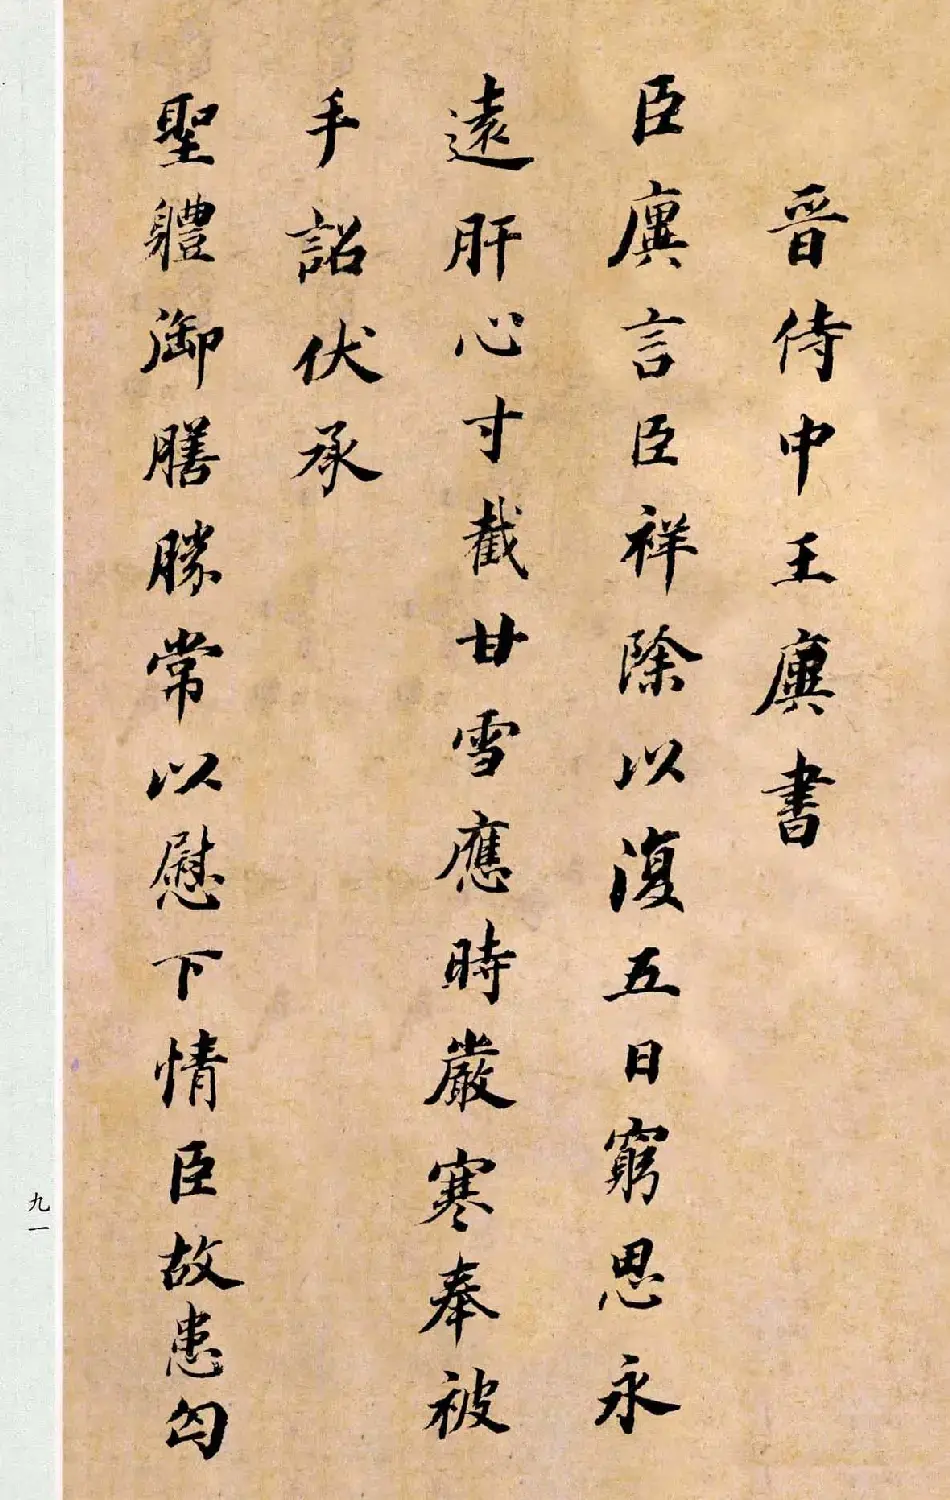 晋侍中王廙書
臣廙言臣祥除以復五日窮思永
遠肝心寸截甘雪應時嚴寒奉被
手詔伏承
聖體御膳勝常以慰下情臣故患匈
九一